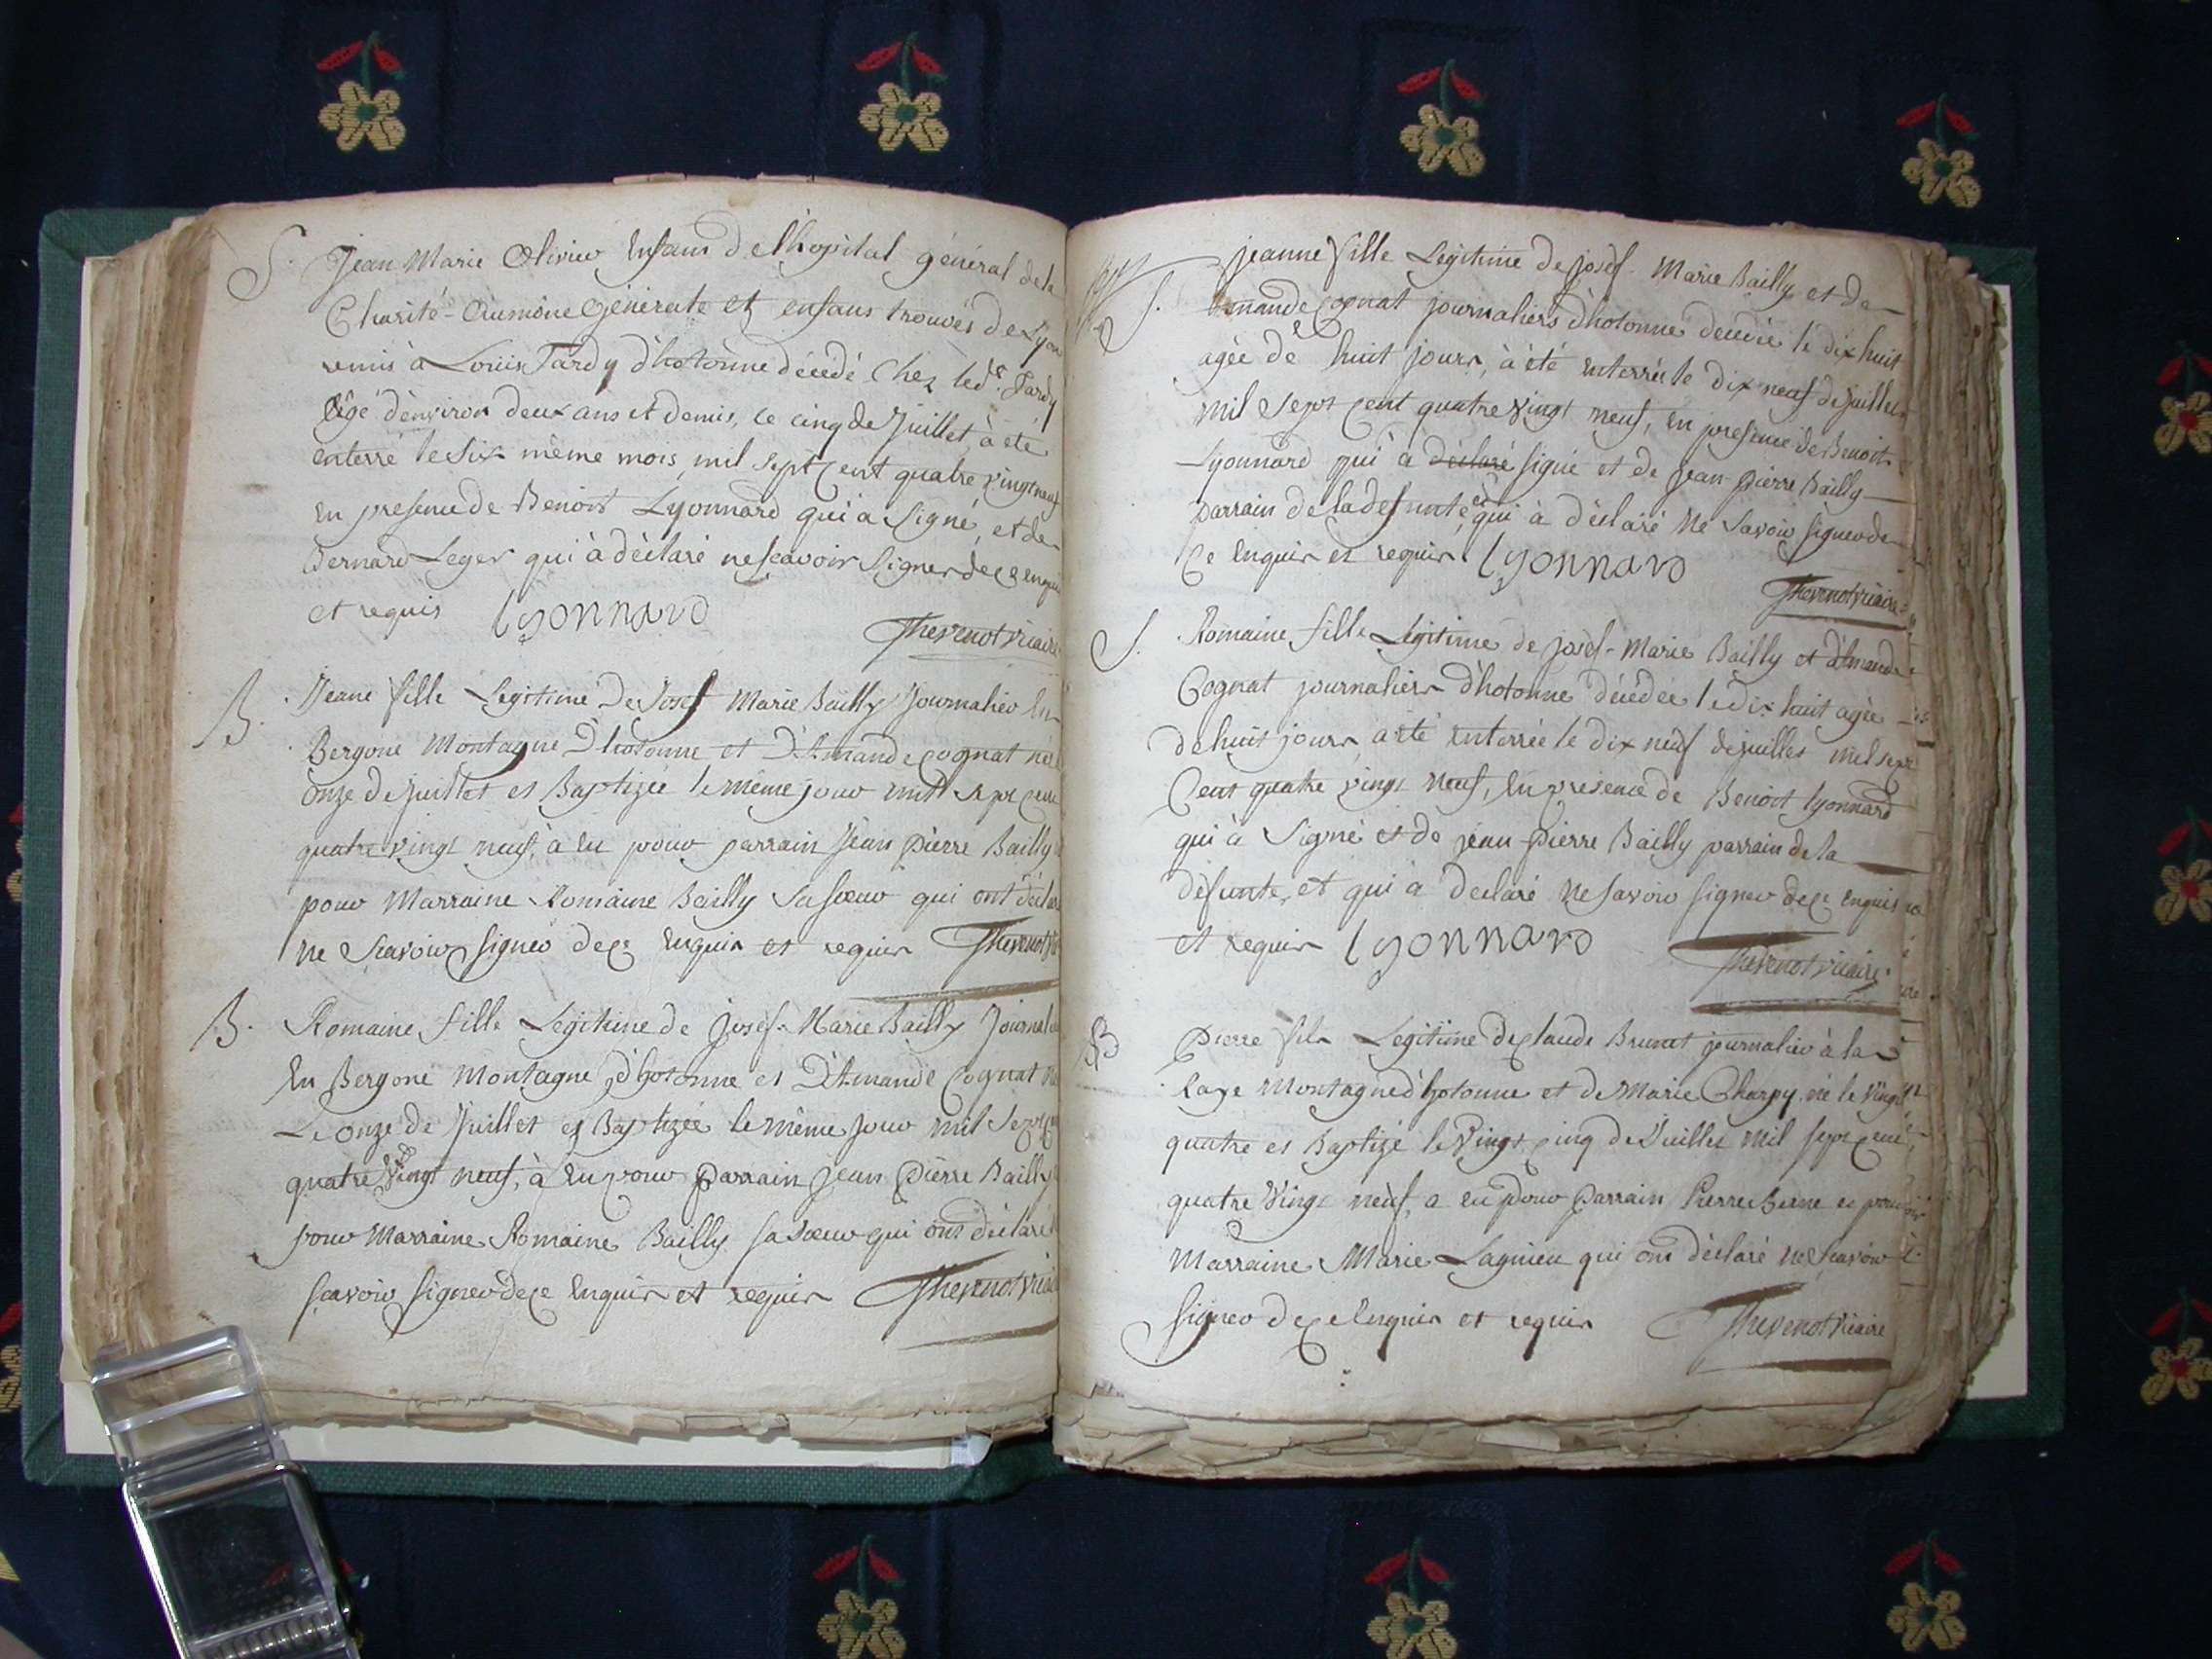 S. Jean Marie Olivier Enfans de l'hopital général de la
Charité-Aumône Générale et enfans trouvés de Lyon
remis à Louis Tardy d'hotonne décédé Chez led.t Tardy
Agé d'environ deux ans et demis, le cinq de Juillet, à été
enterré le Six même mois, mil sept Cent quatre vingt neuf
en presence de Benoit Lyonnard qui a Signé, et de
Bernard Leger qui à déclaré ne sçavoir Signer de ce enquis
et requis Lyonnard Thevenot vicaire
B. Jeane fille Legitime De Josef Marie Bailly Journalier En
Bergone Montagne D'hotonne et D'Amande Cognat née
onze de Juillet et Baptizée le même jour mil Sept Cent
quatre vingt neuf, à Eu pour parrain Jean pierre Bailly
pour Marraine Romaine Bailly Sa Soeur qui ont déclaré
ne Scavoir signer de ce Enquis et requis Thevenot
B. Romaine fille Legitime de Josef-Marie Bailly Journalier
En Bergone Montagne d'hotonne et D'Amande Cognat née
Le onze de Juillet et Baptizée le même Jour mil Sept Cent
quatre Vingt neuf, à Eu pour Parrain Jean Pierre Bailly
pour Marraine Romaine Bailly sa Soeur qui ont déclaré
Scavoir signer de Ce Enquis et requis Thevenot vicaire
S. jeanne fille Legitime de Josef-Marie Bailly et de
Amande Cognat journaliers d'hotonne décédée le dix huit
agée de huit jours, à été enterrée le dix neuf de juillet
Mil Sept Cent quatre Vingt neuf, en presence de Benoit
Lyonnard qui à déclaré signé et de Jean-Pierre Bailly
parrain de la defunte, et qui à déclaré Ne Savoir signer de
Ce Enquis et requis Lyonnard Thevenot vicaire
S. Romaine fille Legitime de Josef-Marie Bailly et d'Amande
Cognat journaliers d'hotonne décédée le dix huit agée
de huit jours a été enterrée le dix neuf de juillet mil sept
Cent quatre vingt Neuf, En presence de Benoit Lyonnard
qui à Signé et de jean-Pierre Bailly parrain de la
défunte, et qui a declaré ne savoir signer de ce enquis
et requis Lyonnard Thevenot vicaire
B Pierre fils Legitime de Claude Brunet journalier à la
Laye Montagne d'hotonne et de Marie Charpy né le vingt
quatre et Baptizé le Vingt cinq de Juillet mil sept Cent
quatre Vingt neuf, a eu pour Parrain Pierre Berne et pour
Marraine Marie Lagnieu qui ont déclaré ne Scavoir
Signer de Ce Enquis et requis Thevenot vicaire